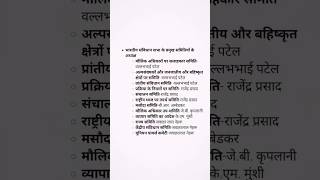 भारतीय संविधान सभा के प्रमुख समितियों के अध्यक्ष
मौलिक अधिकारों पर सलाहकार समिति-
वल्लभभाई पटेल
अल्पसंख्यकों और जनजातीय और बहिष्कृत
क्षेत्रों पर समिति- वल्लभभाई पटेल
प्रांतीय संविधान समिति- वल्लभभाई पटेल
प्रक्रिया के नियमों पर समिति- राजेंद्र प्रसाद
संचालन समिति- राजेंद्र प्रसाद
राष्ट्रीय ध्वज पर तदर्थ समिति- राजेंद्र प्रसाद
मसौदा समिति- बी.आर. अम्बेडकर
मौलिक अधिकार उप समिति- जे.बी. कृपलानी
व्यापार समिति का आदेश- के.एम. मुंशी
राज्य समिति- जवाहर लाल नेहरू
केंद्रीय संविधान समिति- जवाहरलाल नेहरू
यूनियन पावर्स कमेटी- जवाहरलाल नेहरू